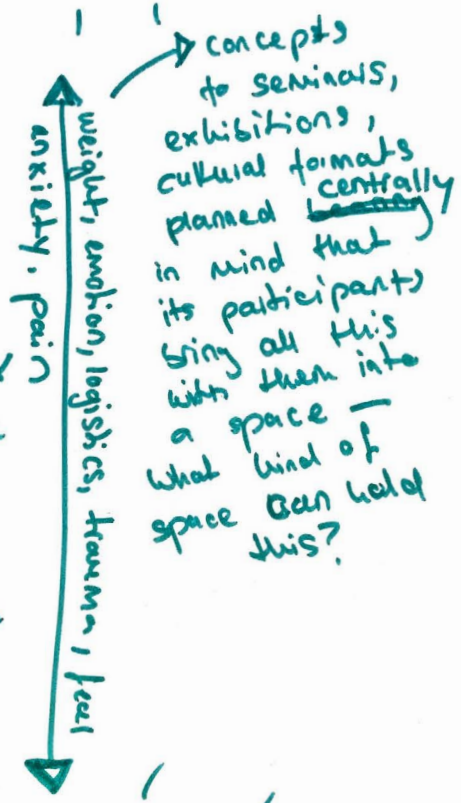 weight, emotion, logistics, trauma, fear
anxiety, pain
concepts
to seminars,
exhibitions,
cultural formats
centrally
planned
in mind that
its participants
bring all this
with them into
a space —
what kind of
space can hold
this?